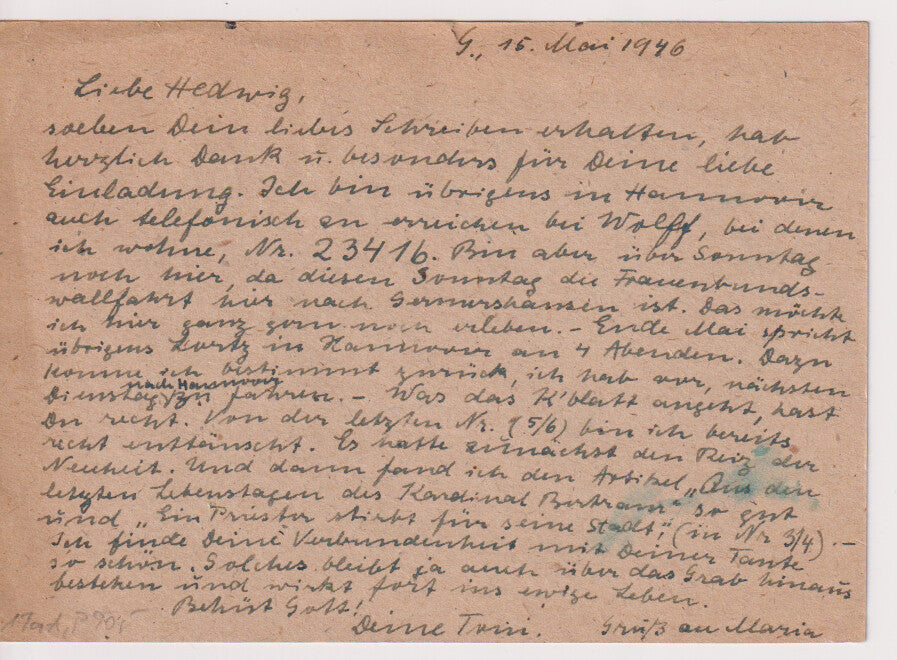 G., 15. Mai 1946
Liebe Hedwig,
soeben Dein liebes Schreiben erhalten, hab
herzlich Dank u. besonders für Deine liebe
Einladung. Ich bin übrigens in Hannover
auch telefonisch zu erreichen bei Wolff, bei denen
ich wohne, Nr. 23416. Bin aber über Sonntag
noch hier, da diesen Sonntag die Frauenbunds-
wallfahrt hier nach Germershausen ist. Das möchte
ich hier ganz gern noch erleben. – Ende Mai spricht
übrigens Lortz in Hannover an 4 Abenden. Dazu
komme ich bestimmt zurück, ich hab vor, nächsten
Dienstag nach Hannover zu fahren. – Was das K'blatt angeht, hast
Du recht. Von der letzten Nr. (5/6) bin ich bereits
recht enttäuscht. Es hatte zunächst den Reiz der
Neuheit. Und dann fand ich den Artikel „Aus den
letzten Lebenstagen des Kardinal Bertram" so gut
und „Ein Priester stirbt für seine Stadt", (in Nr 3/4) . –
Ich finde Deine Verbundenheit mit Deiner Tante
so schön. Solches bleibt ja auch über das Grab hinaus
bestehen und wirkt fort ins ewige Leben.
Behüt Gott!
Deine Toni. Gruß an Maria